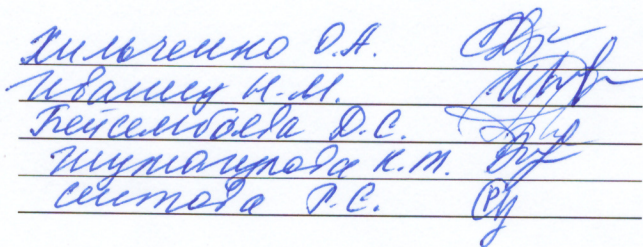 Хильченко О.А.
Иваниц Н.М.
Бейсембаева Д.С.
Жумагулова К.Т.
Сеитова Г.С.